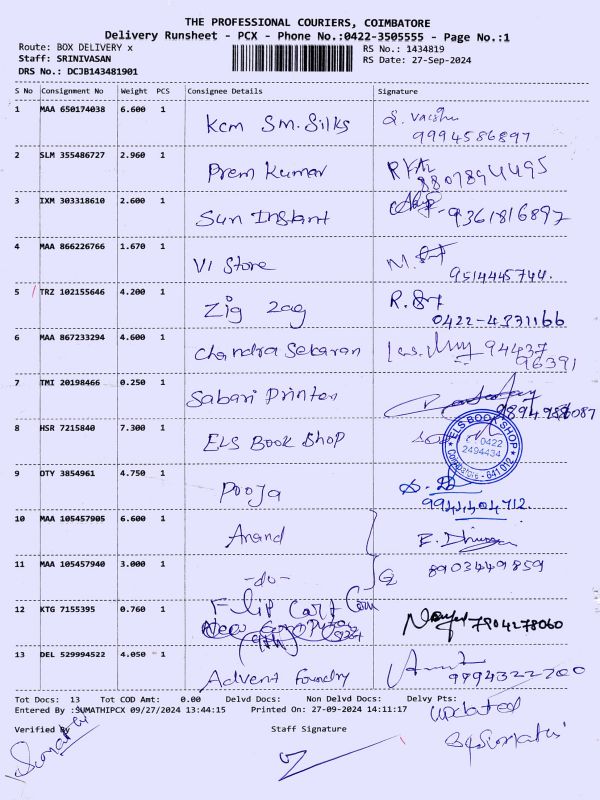 THE PROFESSIONAL COURIERS, COIMBATORE
Delivery Runsheet - PCX - Phone No.:0422-3505555 - Page No.:1
Route: BOX DELIVERY x
RS No.: 1434819
Staff: SRINIVASAN
RS Date: 27-Sep-2024
DRS No.: DCJB143481901
S No Consignment No Weight PCS Consignee Details Signature
1 MAA 650174038 6.600 1 Kcm Sm. Silks
9994586897
2 SLM 355486727 2.960 1 Prem Kumar
8807894495
3 IXM 303318610 2.600 1 Sun Instant 9361816897
4 MAA 866226766 1.670 1 VI Store
9514445744.
5 TRZ 102155646 4.200 1 Zig Zag
0422-4331166
6 MAA 867233294 4.600 1 Chandra Sekaran 94437
96391
7 TMI 20198466 0.250 1 Sabari Printers
8 HSR 7215840 7.300 1 ELS Book Shop
ELS BOOK SHOP
0422
2494434
Coimbatore - 641 012
9 DTY 3854961 4.750 1 Pooja
10 MAA 105457905 6.600 1 Anand
11 MAA 105457940 3.000 1 -do- 8903449859
12 KTG 7155395 0.760 1 Flip Cart Com
7904278060
13 DEL 529994522 4.050 1 Advent Foundry
Tot Docs: 13 Tot COD Amt: 0.00 Delvd Docs: Non Delvd Docs: Delvy Pts:
Entered By :SUMATHIPCX 09/27/2024 13:44:15 Printed On: 27-09-2024 14:11:17
updated
Verified By Staff Signature